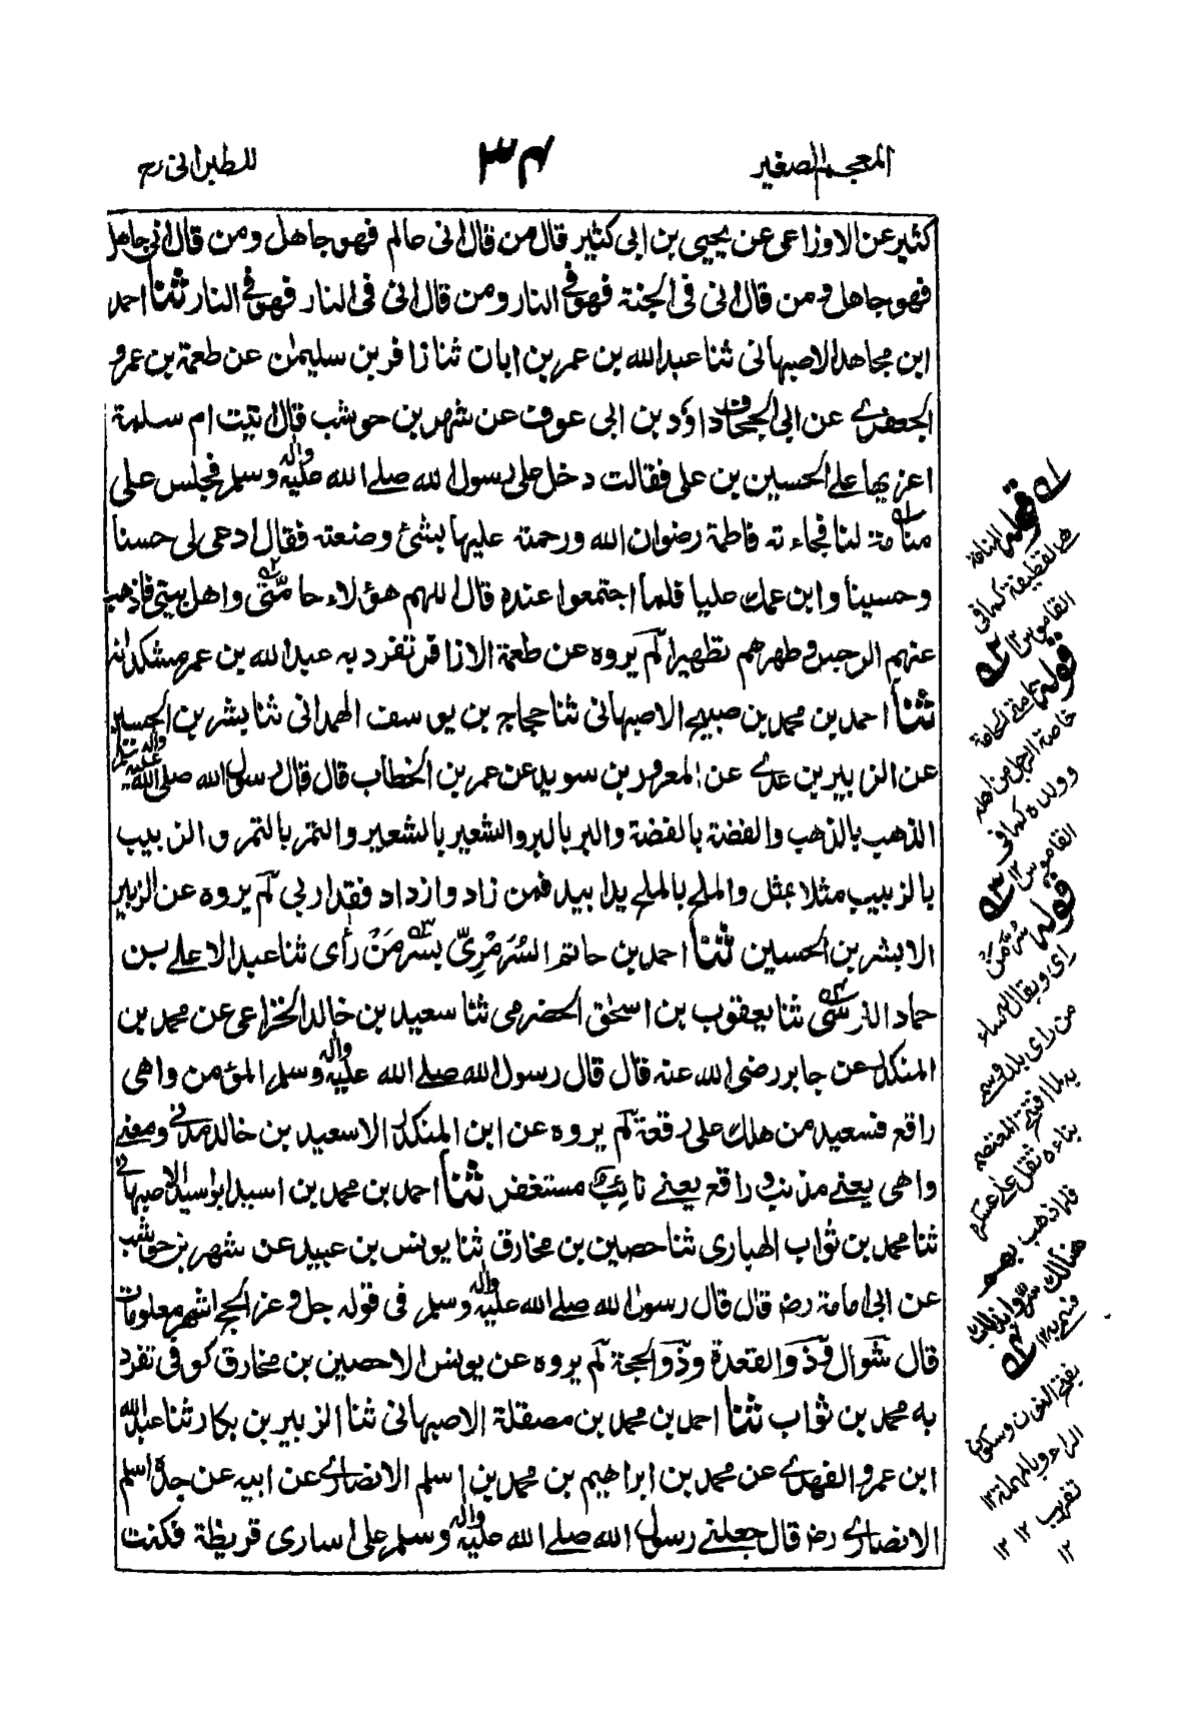 المعجم الصغير
٣٤
للطبرانی رح
كثير عن الاوزاعی عن يحيی بن ابی كثير قال من قال انی عالم فهو جاهل ومن قال انی جاهل
فهو جاهل ومن قال انی فی الجنة فهو فی النار ومن قال انی فی النار فهو فی النار ثنا احمد
ابن مجاهد الاصبهانی ثنا عبد الله بن عمر بن ابان ثنا زافر بن سليمٰن عن طعمة بن عمرو
الجعفری عن ابی الجحاف داؤد بن ابی عوف عن شهر بن حوشب قال اتيت ام سلمة
اعزيها علی الحسين بن علی فقالت دخل علی رسول الله صلی الله عليه واٰله وسلم فجلس علی
منامة لنا فجاءته فاطمة رضوان الله ورحمته عليها بشئ وضعته فقال ادعی لی حسنا
وحسينا وابن عمك عليا فلما اجتمعوا عنده قال اللهم هؤلاء حامّتی واهل بيتی فاذهب
عنهم الرجس وطهرهم تطهيرا لم يروه عن طعمة الا زافر تفرد به عبد الله بن عمر مشكدانه
ثنا احمد بن محمد بن صبيح الاصبهانی ثنا حجاج بن يوسف الهمدانی ثنا بشر بن الحسين
عن الزبير بن عدی عن المعرور بن سويد عن عمر بن الخطاب قال قال رسول الله صلی الله عليه واٰله وسلم
الذهب بالذهب والفضة بالفضة والبر بالبر والشعير بالشعير والتمر بالتمر والزبيب
بالزبيب مثلا بمثل والملح بالملح يدا بيد فمن زاد وازداد فقد اربی لم يروه عن الزبير
الا بشر بن الحسين ثنا احمد بن حاتم السُرَّمَرِیّ بسُرَّمَنْ رَأی ثنا عبد الاعلی بن
حماد النرسی ثنا يعقوب بن اسحٰق الحضرمی ثنا سعيد بن خالد الخزاعی عن محمد بن
المنكدر عن جابر رضی الله عنه قال قال رسول الله صلی الله عليه واٰله وسلم المؤمن واهی
راقع فسعيد من هلك علی رقعة لم يروه عن ابن المنكدر الا سعيد بن خالد مدنی ومعنی
واهی يعنی مذنب وراقع يعنی تائب مستغفر ثنا احمد بن محمد بن اسيد ابو اسيد الاصبهانی
ثنا محمد بن ثواب الهباری ثنا حصين بن مخارق ثنا يونس بن عبيد عن شهر بن حوشب
عن ابی امامة رضـ قال قال رسول الله صلی الله عليه واٰله وسلم فی قوله جل وعز الحج اشهر معلومات
قال شوال وذو القعدة وذو الحجة لم يروه عن يونس الا حصين بن مخارق كوفی تفرد
به محمد بن ثواب ثنا احمد بن محمد بن مصقلة الاصبهانی ثنا الزبير بن بكار ثنا عبد الله
ابن عمرو الفهری عن محمد بن ابراهيم بن محمد بن اسلم الانصاری عن ابيه عن جده اسلم
الانصاری رضـ قال جعلنی رسول الله صلی الله عليه واٰله وسلم علی اساری قريظة فكنت
له١ قوله المنامة
هی القطيفة كما فی
القاموس ١٢
٢ه
قوله حامتی الحامة
خاصة الرجل من اهله
وولده كما فی
القاموس ١٢
٣ه
قوله سُرَّ مَن
رای ويقال
من رای بلد
به لما افتتح المعتصم
بناءه ثقل علی عسكره
فلما ذهب بهم
هنالك
٤ه
بفتح النون وسكون
الراء وبالمهملة ١٢
تقريب
١٢ ١٢ ١٢